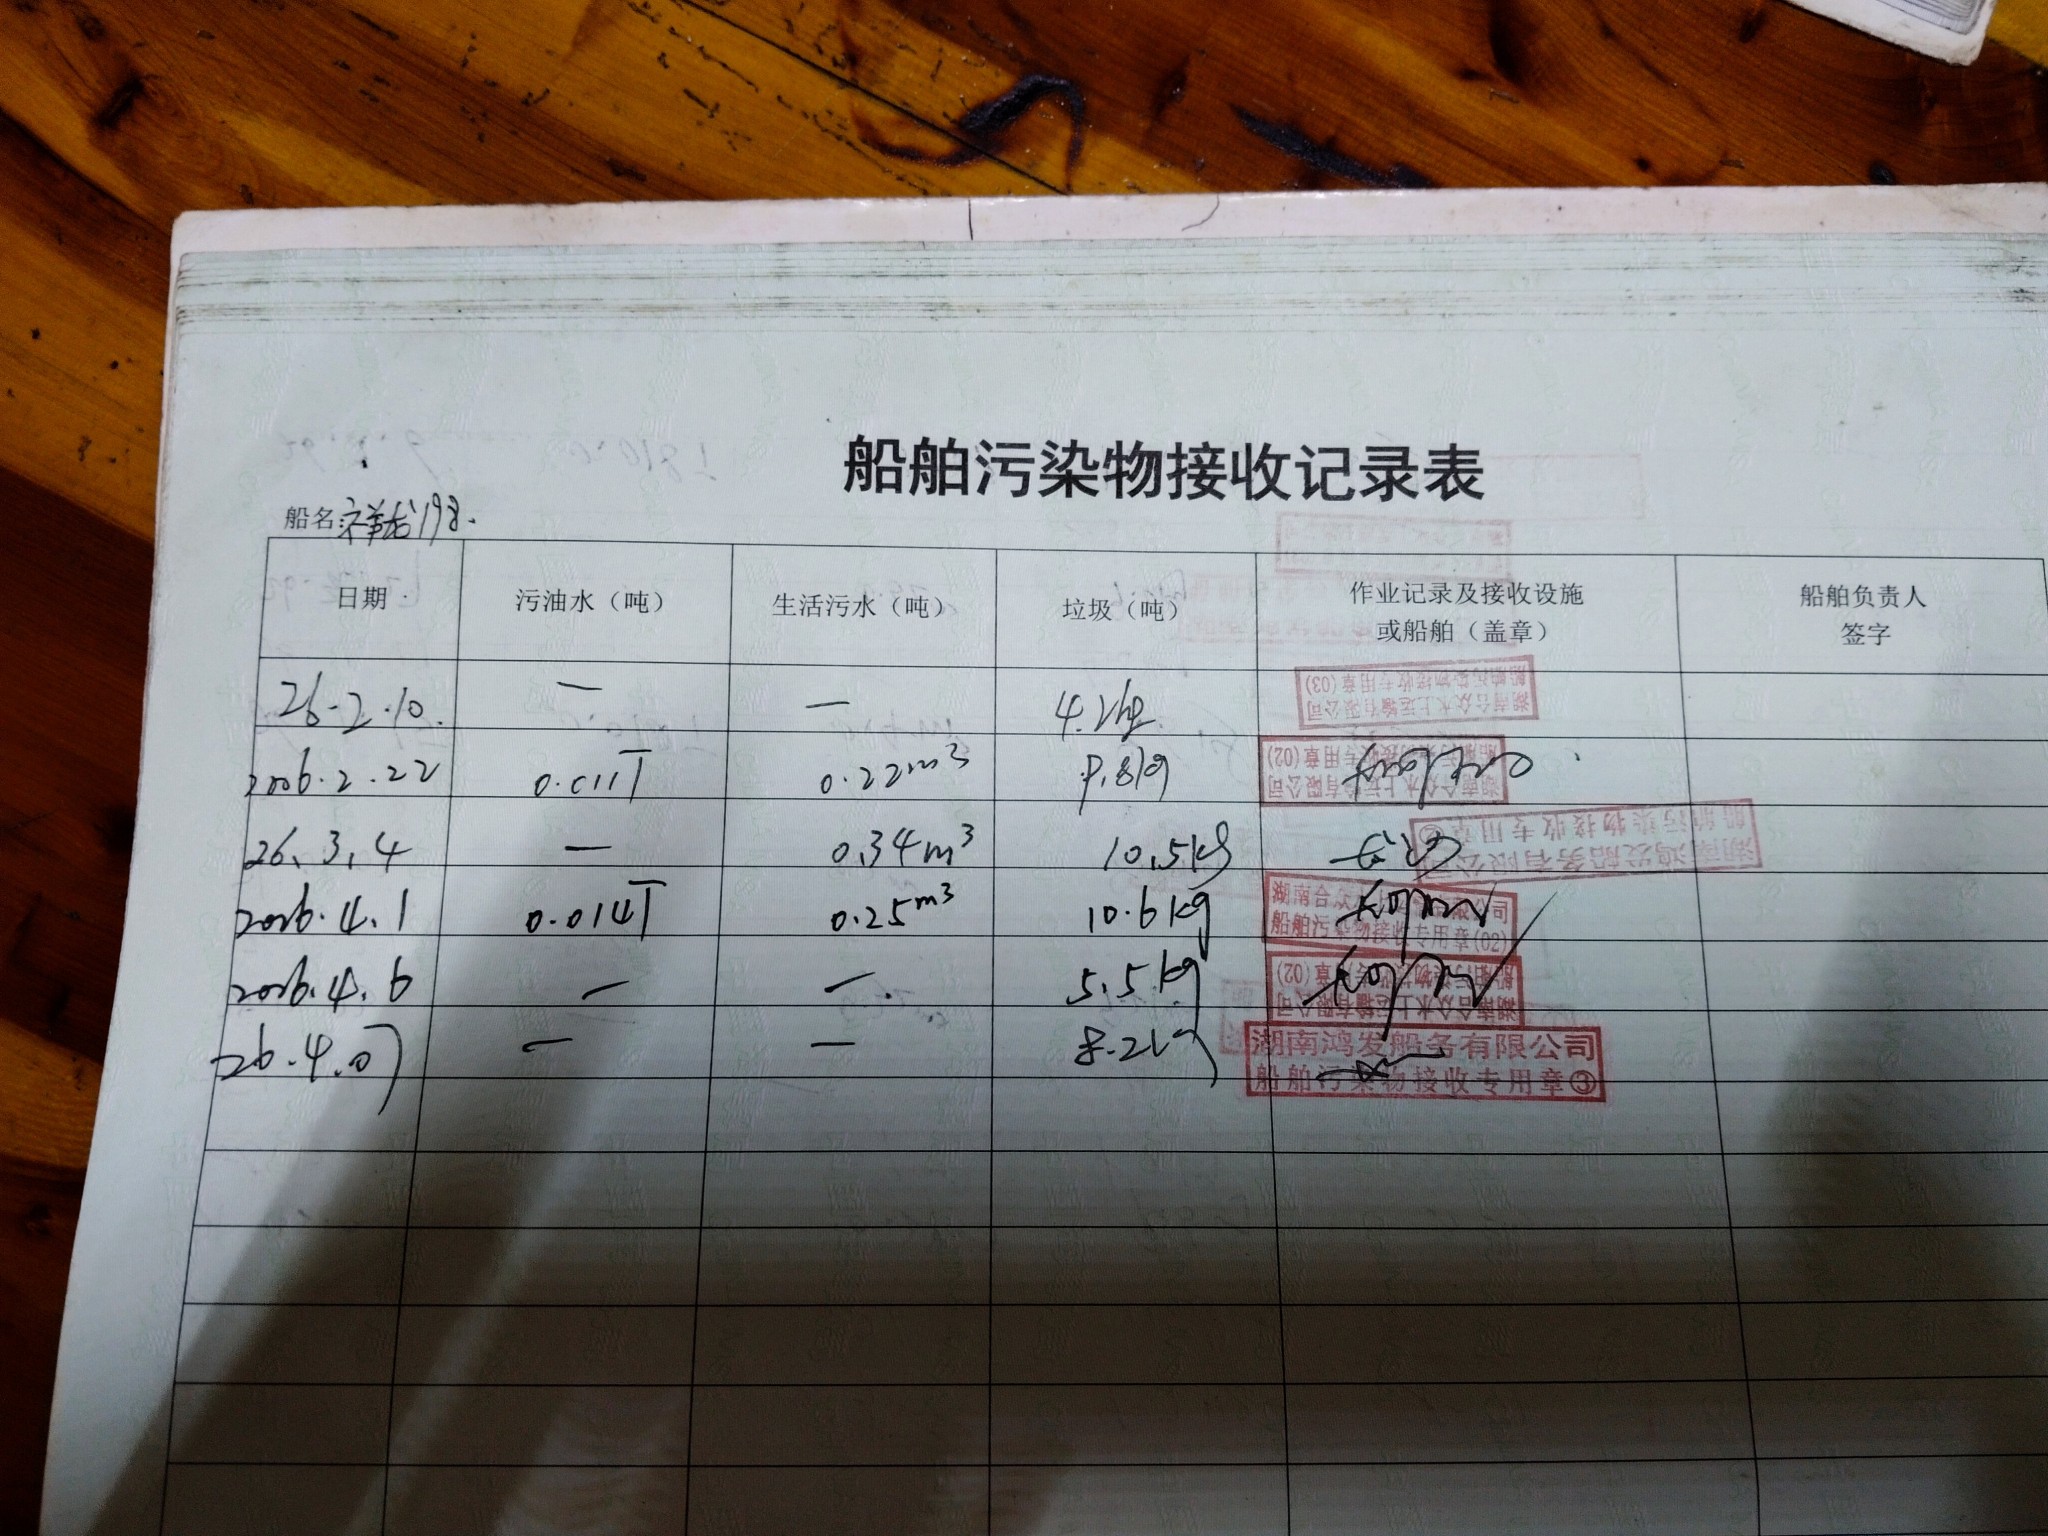 船舶污染物接收记录表
船名:祥龙198.
日期 污油水（吨） 生活污水（吨） 垃圾（吨） 作业记录及接收设施或船舶（盖章） 船舶负责人签字
26.2.10. — — 4.2kg
湖南合众水上运输有限公司
船舶污染物接收专用章(03)
2026.2.22 0.011T 0.22m³ 9.8kg
湖南合众水上运输有限公司
船舶污染物接收专用章(02)
26.3.4 — 0.34m³ 10.5kg
湖南鸿发船务有限公司
船舶污染物接收专用章②
2026.4.1 0.014T 0.25m³ 10.6kg
湖南合众水上运输有限公司
船舶污染物接收专用章(02)
2026.4.6 — — 5.5kg
湖南合众水上运输有限公司
船舶污染物接收专用章(02)
26.4.07 — — 8.2kg
湖南鸿发船务有限公司
船舶污染物接收专用章③